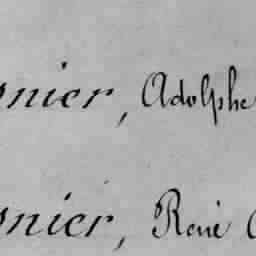 nier, Adolphe
nier, René